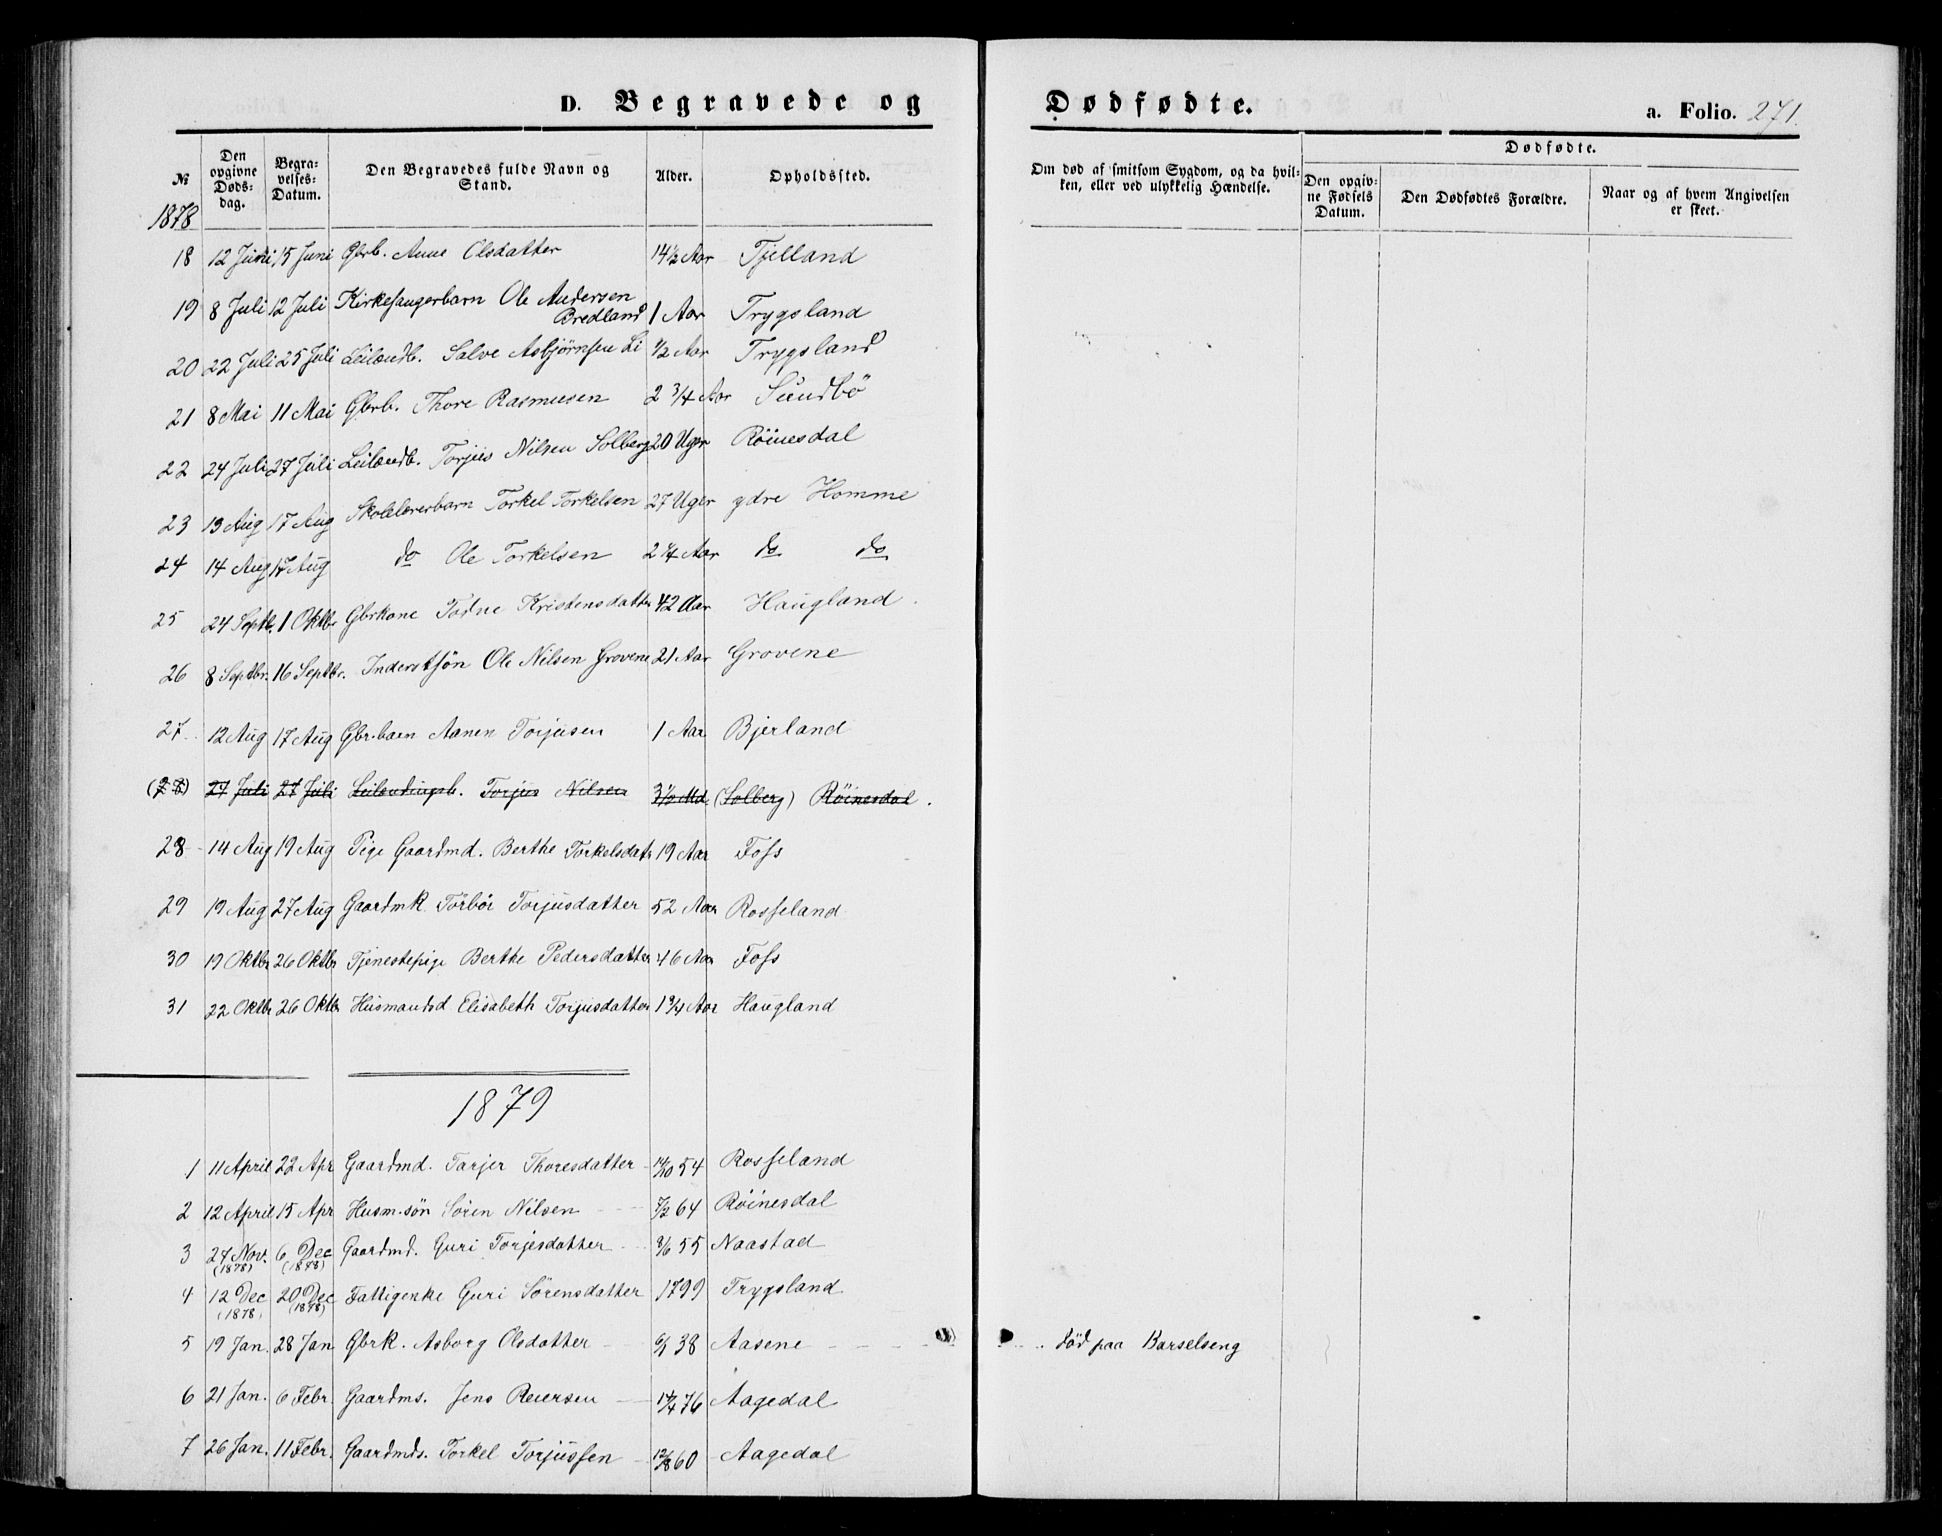 D. Begravede og Dødfødte. a. Folio. 271.
№ Den opgivne Døds-dag. Begra-velses-Datum. Den Begravedes fulde Navn og Stand. Alder. Opholdssted. Om død af smitsom Sygdom, og da hvil-ken, eller ved ulykkelig Hændelse. Dødfødte. Den opgiv-ne Fødsels Datum. Den Dødfødtes Forældre. Naar og af hvem Angivelsen er skeet.
1878
18 12 Juni 15 Juni Gbrb. Anne Olsdatter 14½ Aar Tjelland
19 8 Juli 12 Juli Kirkesangerbarn Ole Andersen Bredland 1 Aar Trygsland
20 22 Juli 25 Juli Leilændb. Salve Asbjørnsen Li ½ Aar Trygsland
21 8 Mai 11 Mai Gbrb. Thore Rasmusen 2 3/4 Aar Sundbö
22 24 Juli 27 Juli Leilændb. Torjus Nilsen Solberg 20 Uger Röinesdal
23 13 Aug 17 Aug Skolelærerbarn Torkel Torkelsen 27 Uger ydre Homme
24 14 Aug 17 Aug do Ole Torkelsen 2 1/4 Aar do do
25 24 Septb. 1 Oktbr Gbrkone Todne Kristensdatter 42 Aar Haugland
26 8 Septbr. 16 Septbr. Inderstsön Ole Nilsen Grovene 21 Aar Grovene
27 12 Aug 17 Aug Gbr.barn Aanen Torjusen 1 Aar Bjerland
(28) 27 Juli Leilendingsb. Torjus Nilsen 3½ Md. (Solberg) Röinesdal.
28 14 Aug 19 Aug Pige Gaardmd. Berthe Torkelsdatr 19 Aar Foss
29 19 Aug 27 Aug Gaardmk Torbör Torjusdatter 52 Aar Rosseland
30 19 Oktbr 26 Oktbr Tjenestepige Berthe Pedersdatter 46 Aar Foss
31 22 Oktbr 26 Oktbr Husmandsd Elisabeth Torjusdatter 1 3/4 Aar Haugland
1879
1 11 April 22 Apr Gaardmd. Tarjer Thoresdatter 14/10 54 Rosseland
2 12 April 15 Apr Husm.sön Sören Nilsen 7/2 64 Röinesdal
3 27 Nov. (1878) 6 Dec (1878) Gaardmd. Guri Torjesdatter 8/6 55 Naastad
4 12 Dec (1878) 20 Dec (1878) Fattigenke Guri Sörensdatter 1799 Trygsland
5 19 Jan. 28 Jan Gbrk. Asborg Olsdatter 6/1 38 Aasene Död paa Barselseng
6 21 Jan. 6 Febr. Gaardms. Jens Reiersen 17/4 76 Aagedal
7 26 Jan. 11 Febr. Gaardmds. Torkel Torjussen 12/8 60 Aagedal